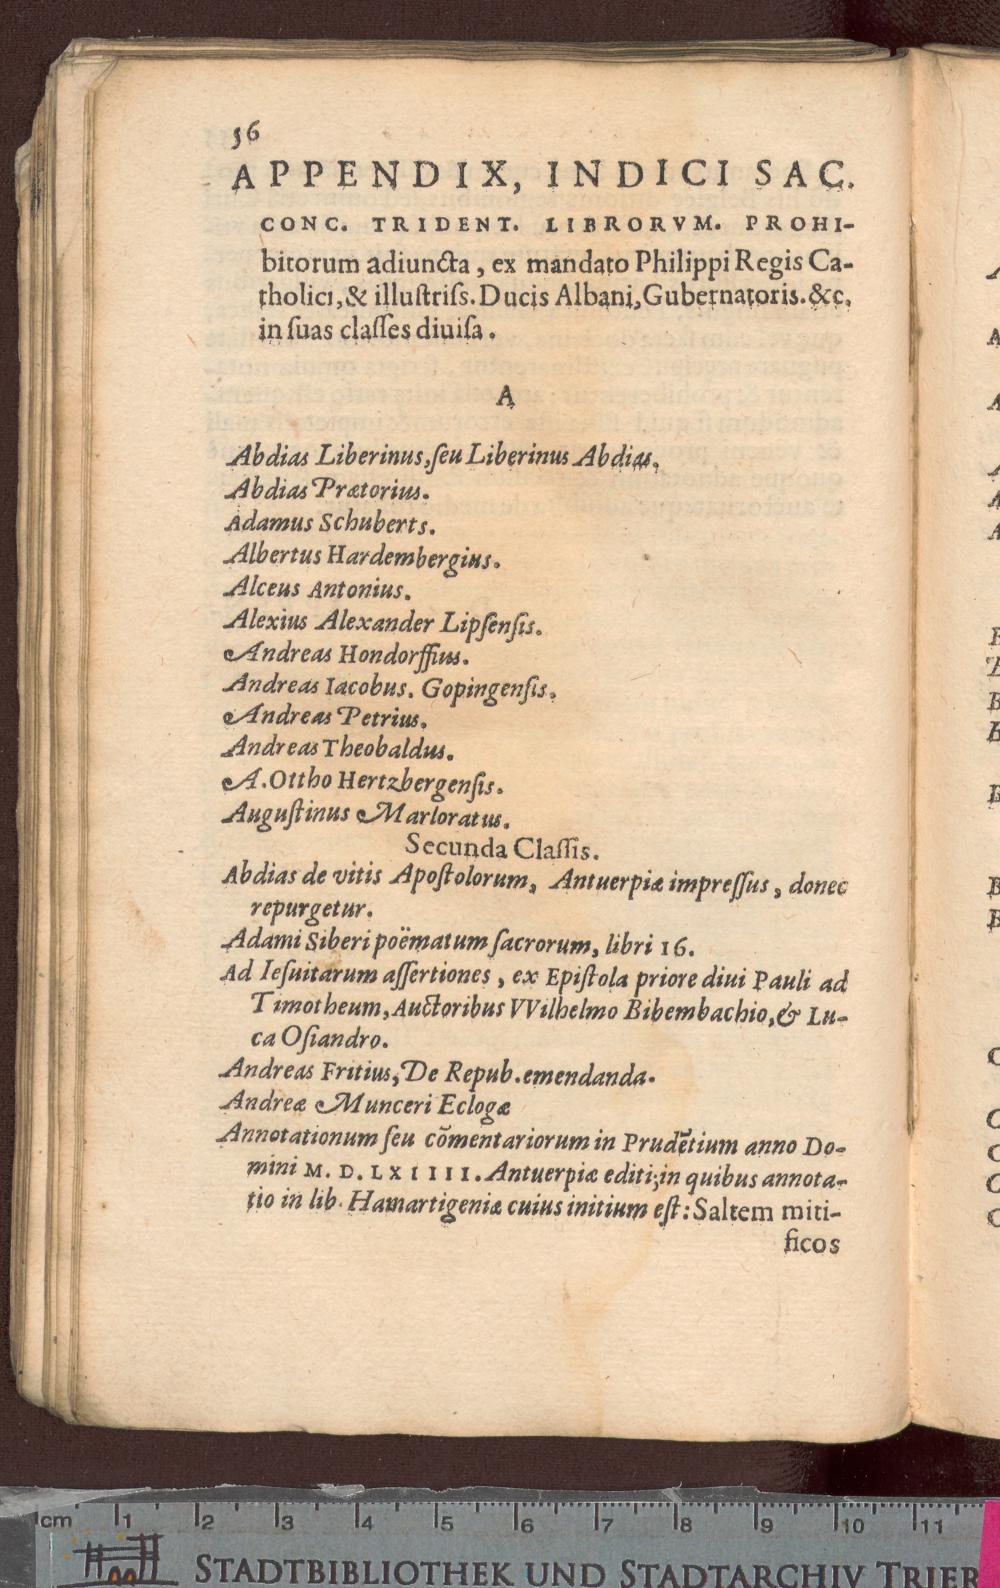 56
APPENDIX, INDICI SAC.
CONC. TRIDENT. LIBRORVM. PROHI-
bitorum adiuncta, ex mandato Philippi Regis Ca-
tholici, & illuſtriſs. Ducis Albani, Gubernatoris. &c,
in ſuas claſſes diuiſa.
A
Abdias Liberinus, ſeu Liberinus Abdias.
Abdias Prætorius.
Adamus Schuberts.
Albertus Hardembergius.
Alceus Antonius.
Alexius Alexander Lipſenſis.
Andreas Hondorffius.
Andreas Iacobus. Gopingenſis.
Andreas Petrius.
Andreas Theobaldus.
A. Ottho Hertzbergenſis.
Auguſtinus Marloratus.
Secunda Claſſis.
Abdias de vitis Apoſtolorum, Antuerpiæ impreſſus, donec
repurgetur.
Adami Siberi poëmatum ſacrorum, libri 16.
Ad Ieſuitarum aſſertiones, ex Epiſtola priore diui Pauli ad
Timotheum, Auctoribus VVilhelmo Bibembachio, & Lu-
ca Oſiandro.
Andreas Fritius, De Repub. emendanda.
Andreæ Munceri Eclogæ
Annotationum ſeu cõmentariorum in Prudẽtium anno Do-
mini M. D. LXIIII. Antuerpiæ editi; in quibus annota-
tio in lib. Hamartigeniæ cuius initium eſt: Saltem miti-
ficos
1cm 1 2 3 4 5 6 7 8 9 10 11
STADTBIBLIOTHEK UND STADTARCHIV TRIER